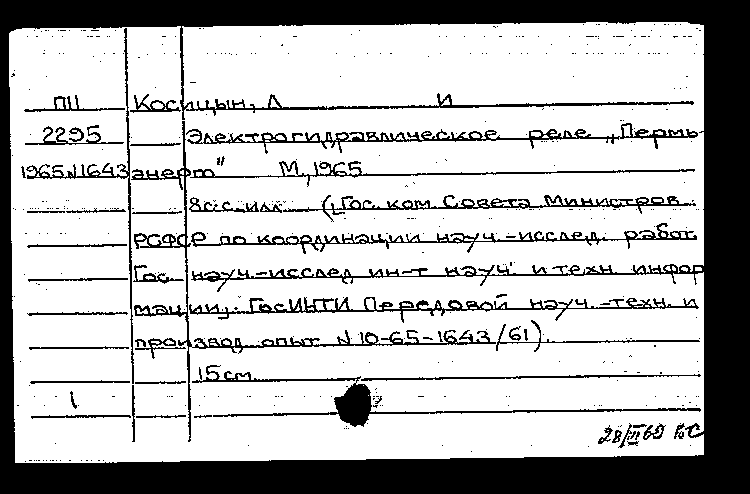 ПII Косицын, Л И
2295 Электрогидравлическое реле „Пермь-
1965 N1643 энерго" М, 1965
8 с. с илл (Гос. ком. Совета Министров
РСФСР по координации науч.-исслед. работ.
Гос. науч.-исслед ин-т науч. и техн. инфор
мации. ГосИНТИ Передовой науч.-техн. и
производ. опыт. N 10-65-1643/61).
15 см
1
28/III 69